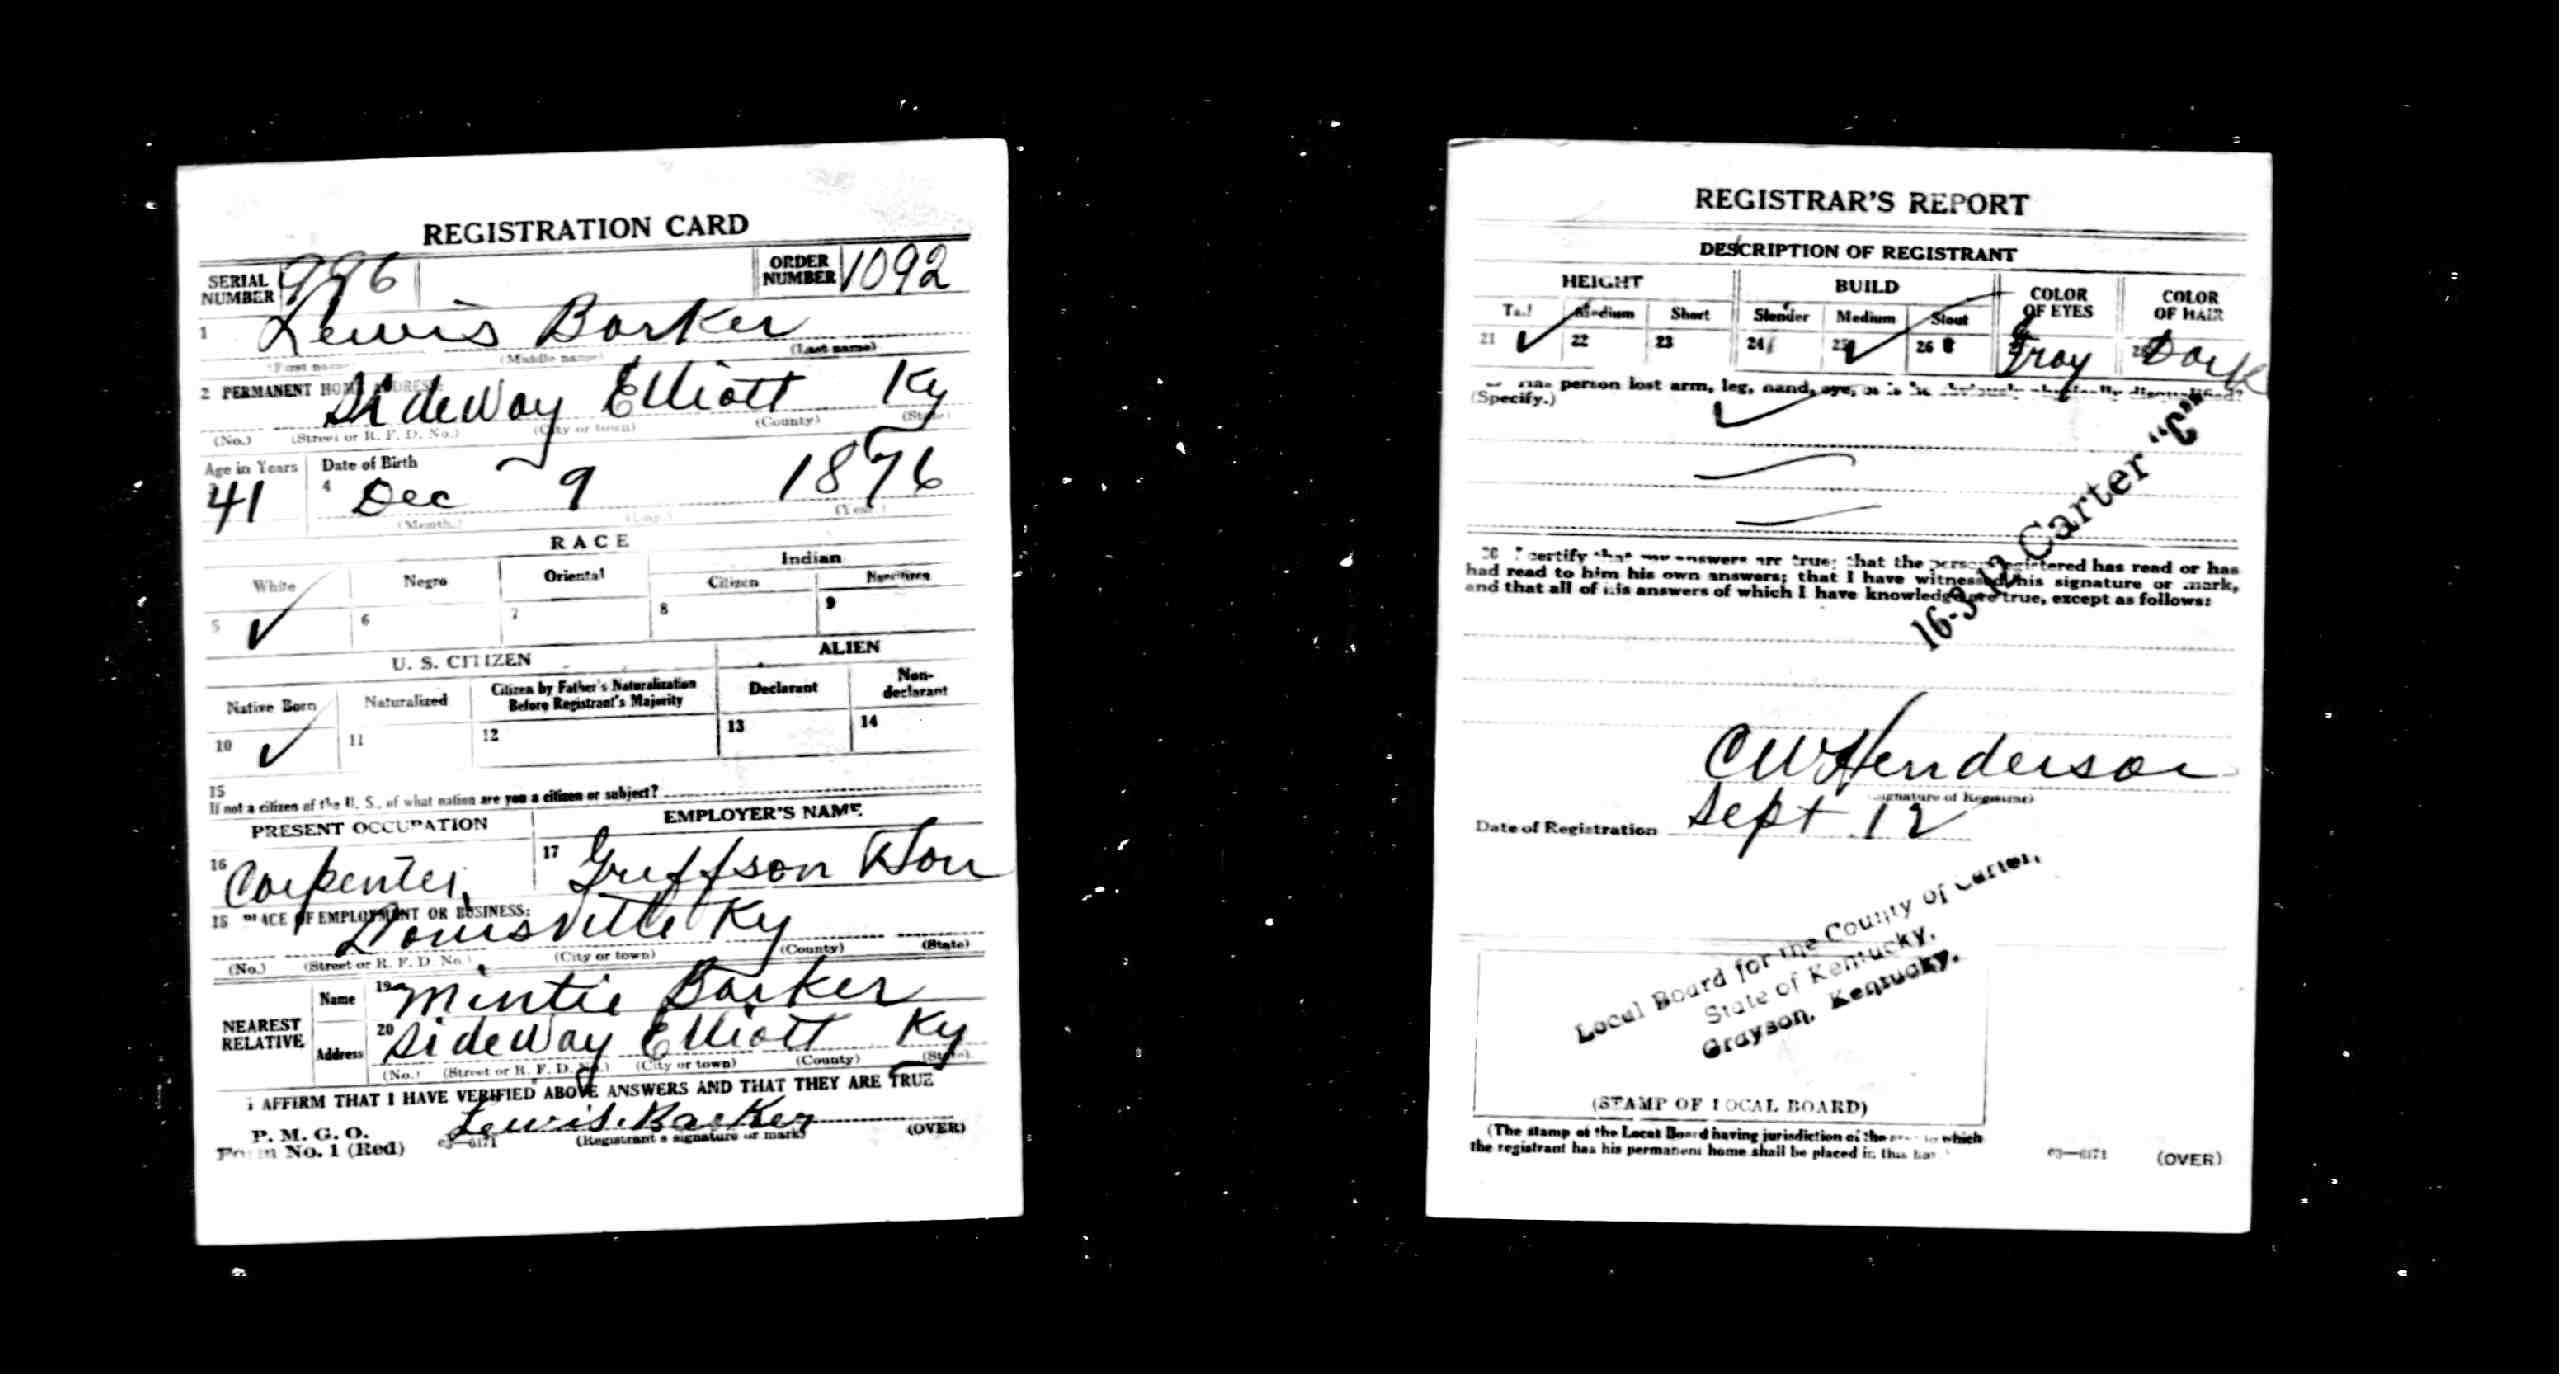 REGISTRATION CARD
SERIAL NUMBER 996 ORDER NUMBER 1092
1 Lewis Barker
(First name) (Middle name) (Last name)
2 PERMANENT HOME ADDRESS:
Sideway Elliott Ky
(No.) (Street or R. F. D. No.) (City or town) (County) (State)
Age in Years Date of Birth
41 4 Dec 9 1876
(Month.) (Day.) (Year.)
RACE
White Negro Oriental Indian
Citizen Noncitizen
5 ✓ 6 7 8 9
U. S. CITIZEN ALIEN
Native Born Naturalized Citizen by Father's Naturalization Before Registrant's Majority Declarant Non-declarant
10 ✓ 11 12 13 14
15
If not a citizen of the U. S., of what nation are you a citizen or subject?
PRESENT OCCUPATION EMPLOYER'S NAME
16 Carpenter 17
PLACE OF EMPLOYMENT OR BUSINESS:
Louisville Ky
(No.) (Street or R. F. D. No.) (City or town) (County) (State)
NEAREST RELATIVE
Name 19 Mintie Barker
Address 20 Sideway Elliott Ky
(No.) (Street or R. F. D. No.) (City or town) (County) (State)
I AFFIRM THAT I HAVE VERIFIED ABOVE ANSWERS AND THAT THEY ARE TRUE
P. M. G. O.
Form No. 1 (Red) 03—6171 Lewis Barker (OVER)
(Registrant's signature or mark)
REGISTRAR'S REPORT
DESCRIPTION OF REGISTRANT
HEIGHT BUILD COLOR OF EYES COLOR OF HAIR
Tall Medium Short Slender Medium Stout
21 ✓ 22 23 24 25 ✓ 26 Gray Dark
Has person lost arm, leg, hand, eye, or is he obviously physically disqualified?
(Specify.) ✓
16-3-12 Carter "C"
I certify that my answers are true; that the person registered has read or has
had read to him his own answers; that I have witnessed his signature or mark,
and that all of his answers of which I have knowledge are true, except as follows:
C W Henderson
(Signature of Registrar)
Date of Registration Sept 12
Local Board for the County of Carter,
State of Kentucky,
Grayson, Kentucky.
(STAMP OF LOCAL BOARD)
(The stamp of the Local Board having jurisdiction of the area in which
the registrant has his permanent home shall be placed in this box.)
03—6171 (OVER)